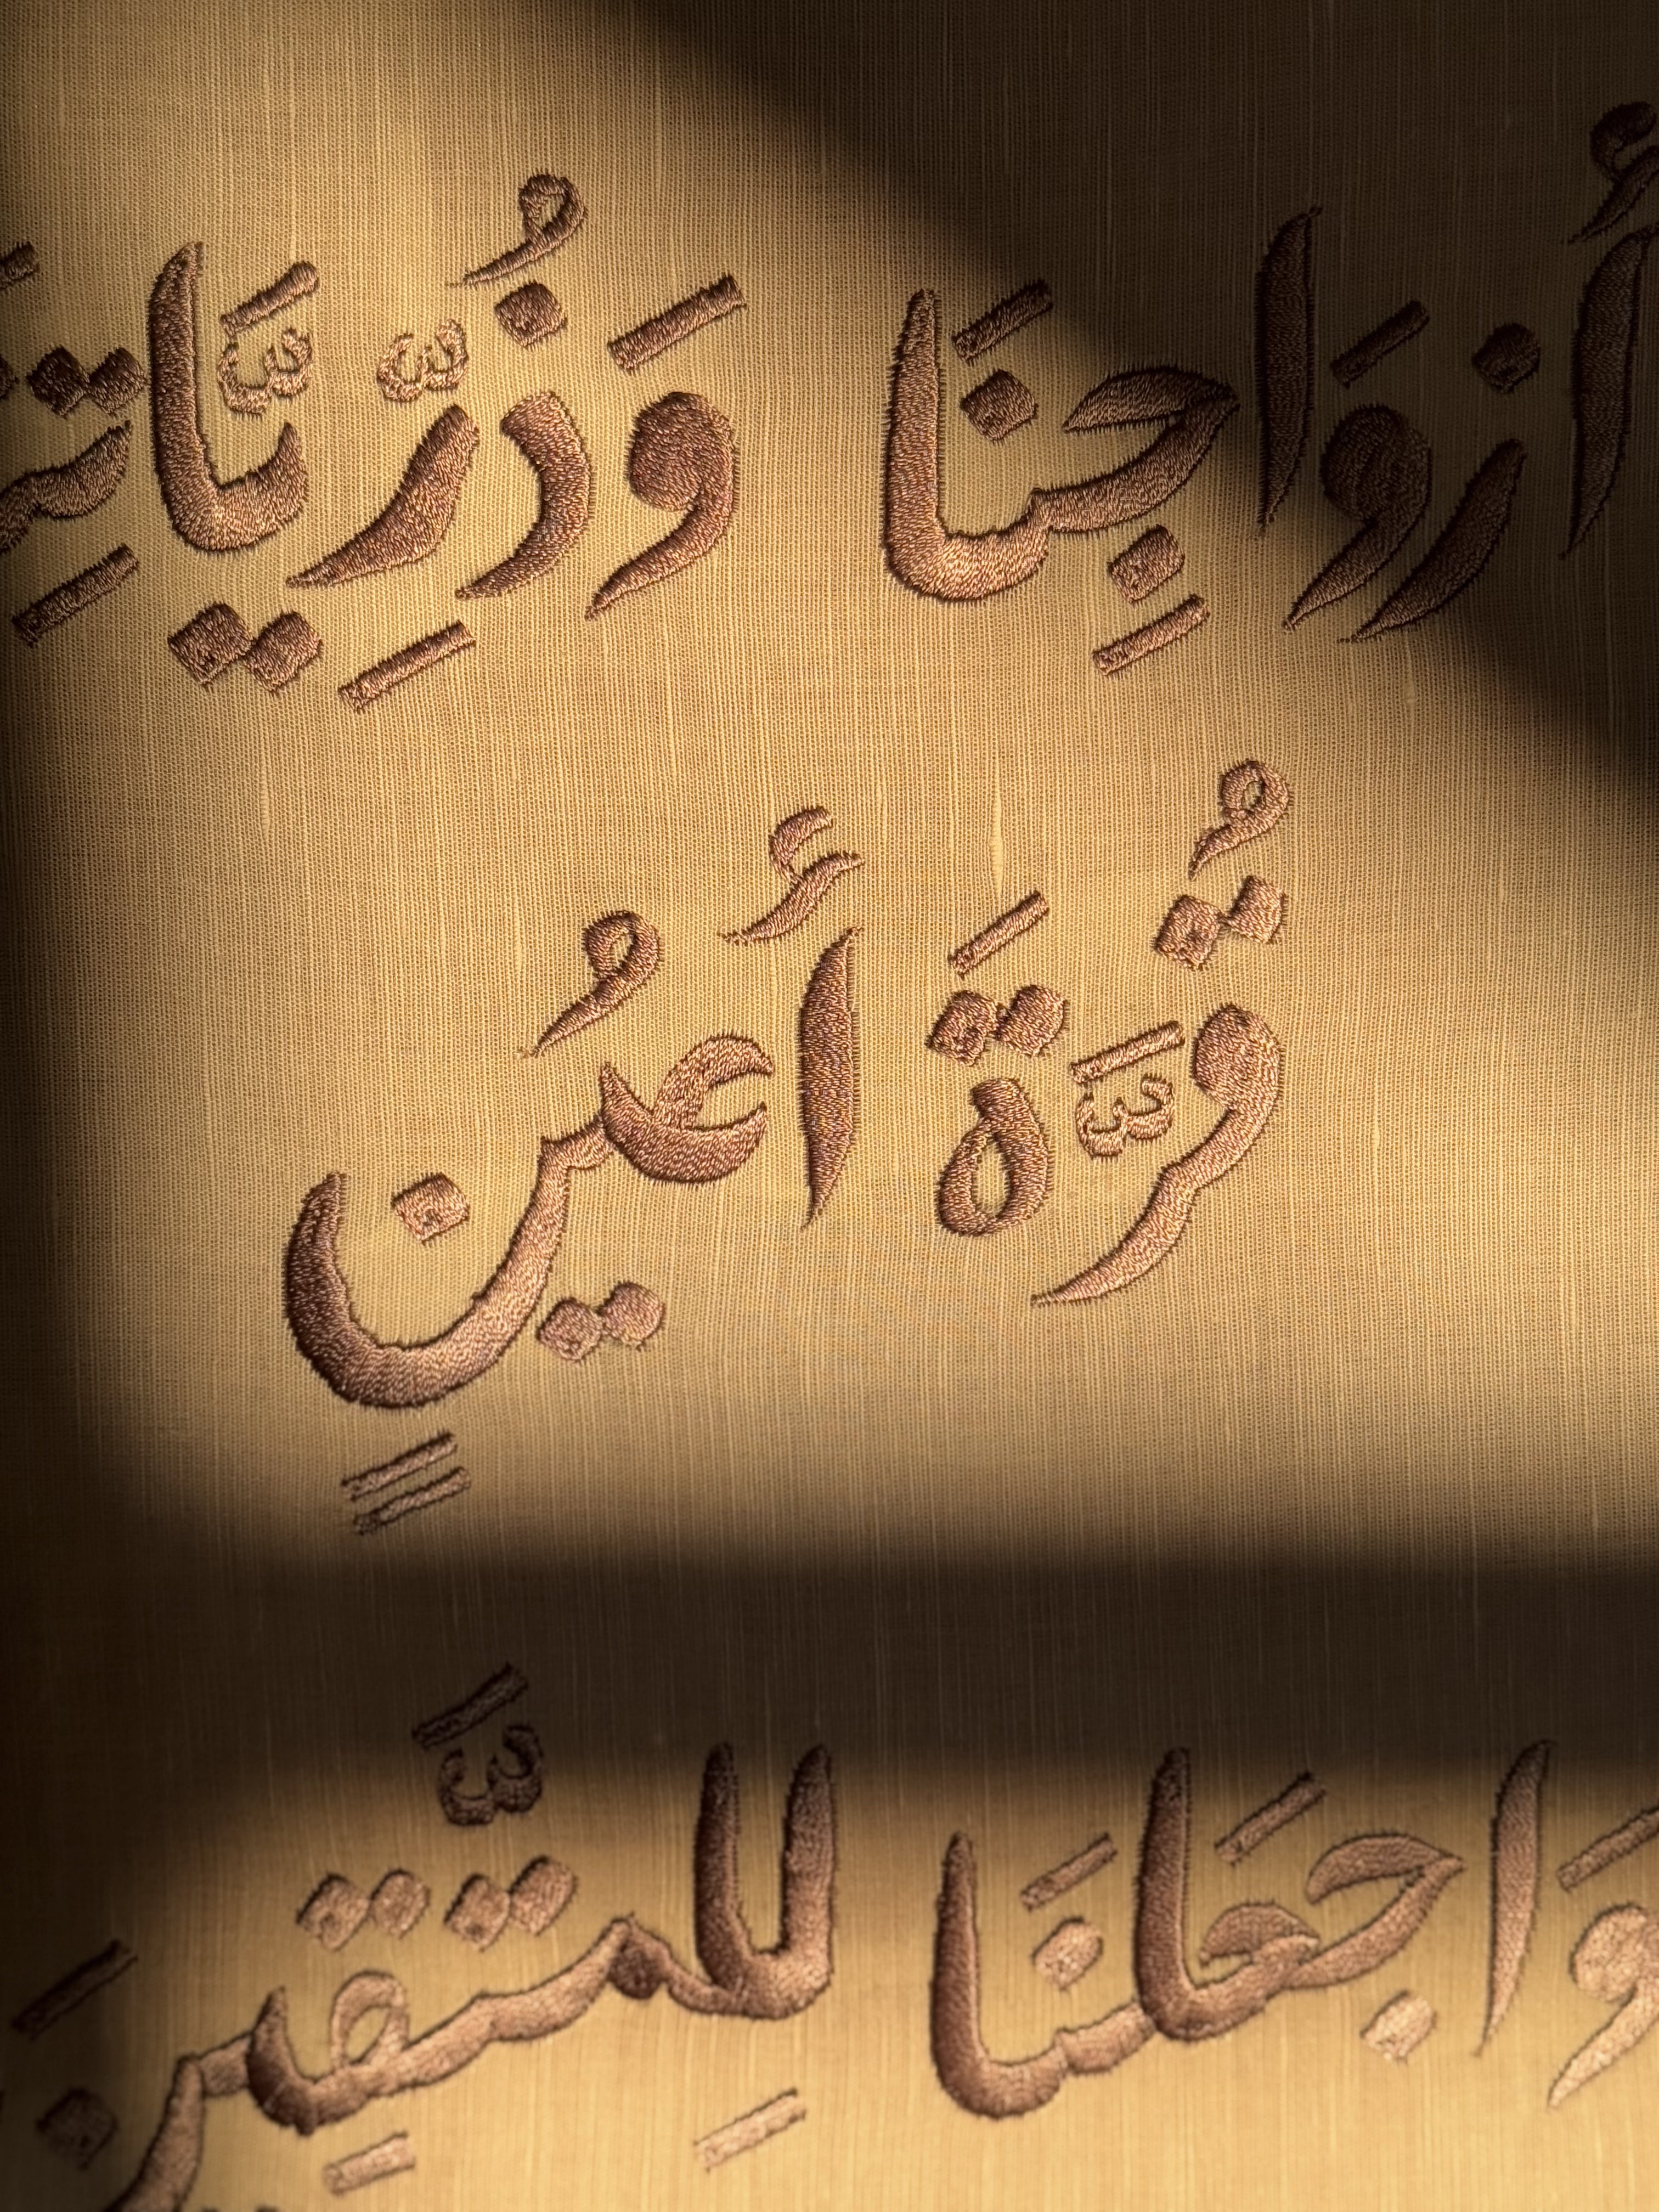 أَزْوَاجِنَا وَذُرِّيَّاتِ
قُرَّةَ أَعْيُنٍ
وَاجْعَلْنَا لِلْمُتَّقِينَ